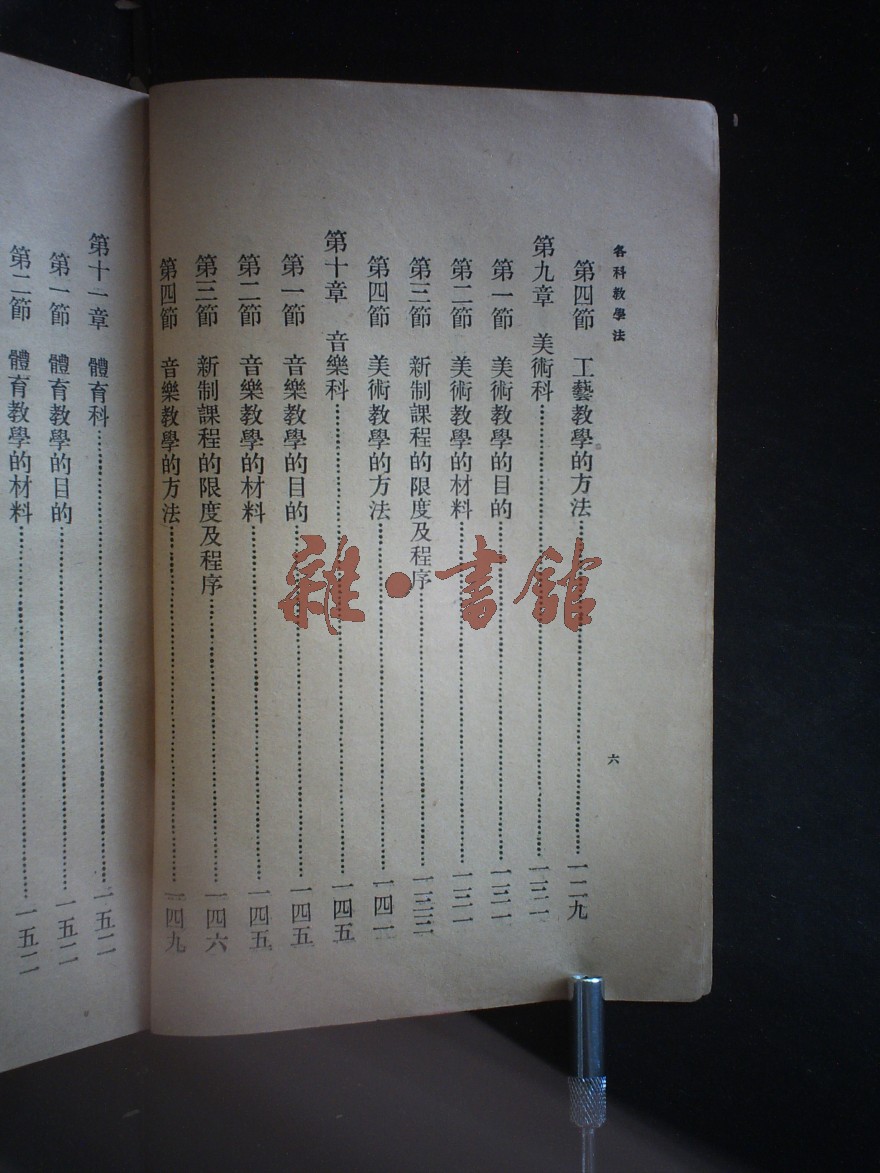 各科教學法
六
第四節 工藝教學的方法……一二九
第九章 美術科……一三一
第一節 美術教學的目的……一三一
第二節 美術教學的材料……一三一
第三節 新制課程的限度及程序……一三三
第四節 美術教學的方法……一四一
第十章 音樂科……一四五
第一節 音樂教學的目的……一四五
第二節 音樂教學的材料……一四五
第三節 新制課程的限度及程序……一四六
第四節 音樂教學的方法……一四九
第十一章 體育科……一五二
第一節 體育教學的目的……一五二
第二節 體育教學的材料……一五二
雜·書館